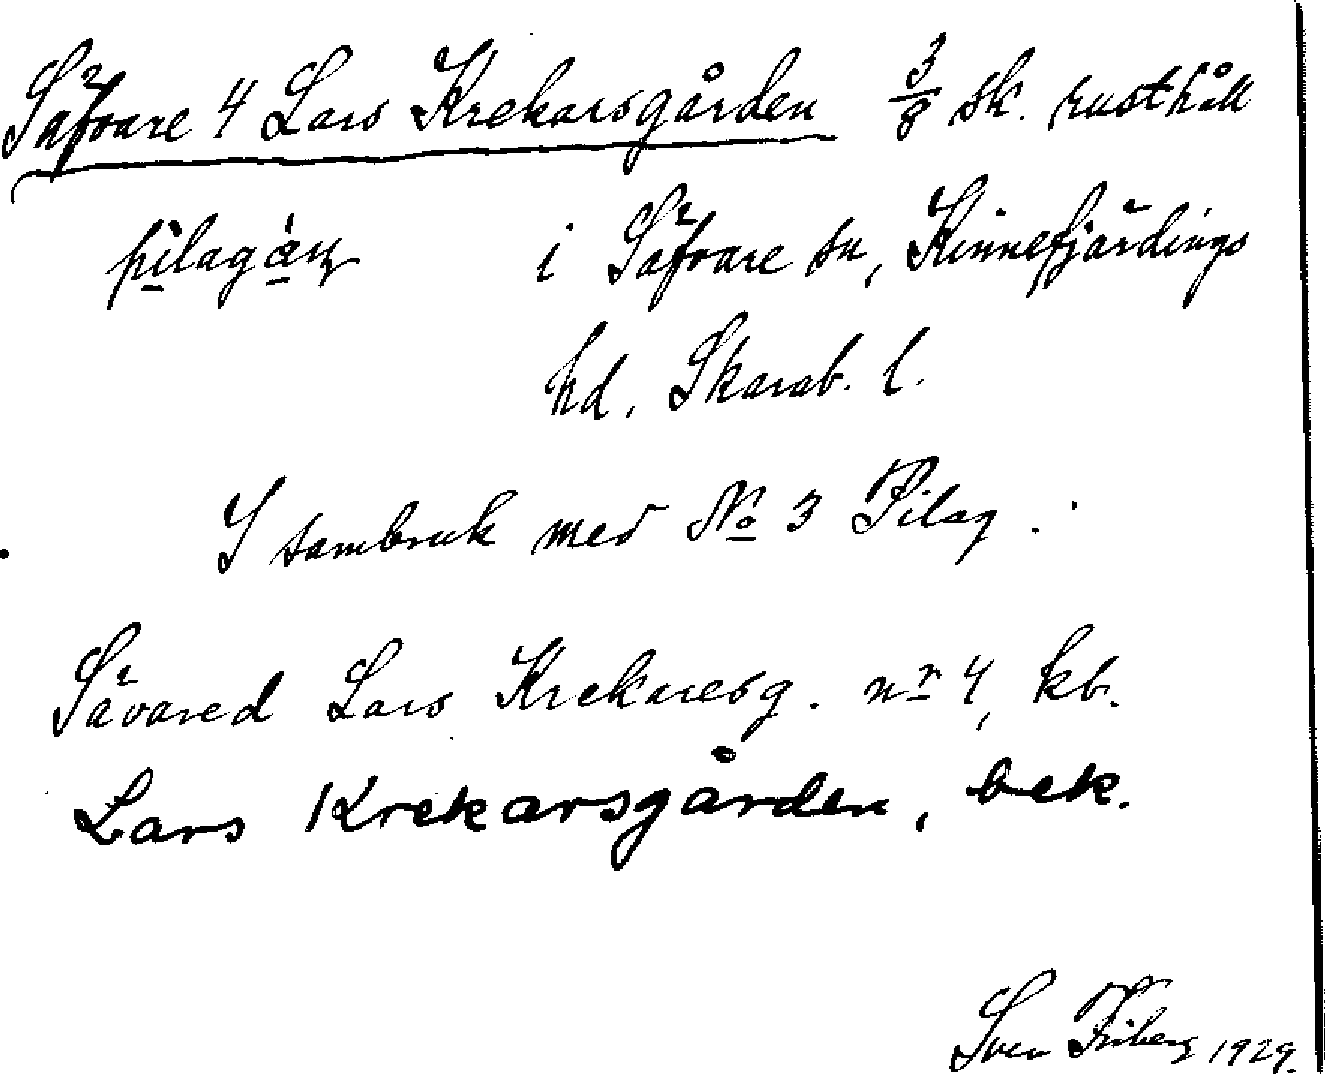 Säfvare 4 Lars Krekarsgården 3/8 sk. rusthåll
i Säfvare sn, Kinnefjärdings
hd. Skarab. l.
I sambruk med No 3 Pilag.
Sävared Lars Krekaresg. nr 4, kb.
Lars Krekarsgården, bek.
Sven Friberg 1929.